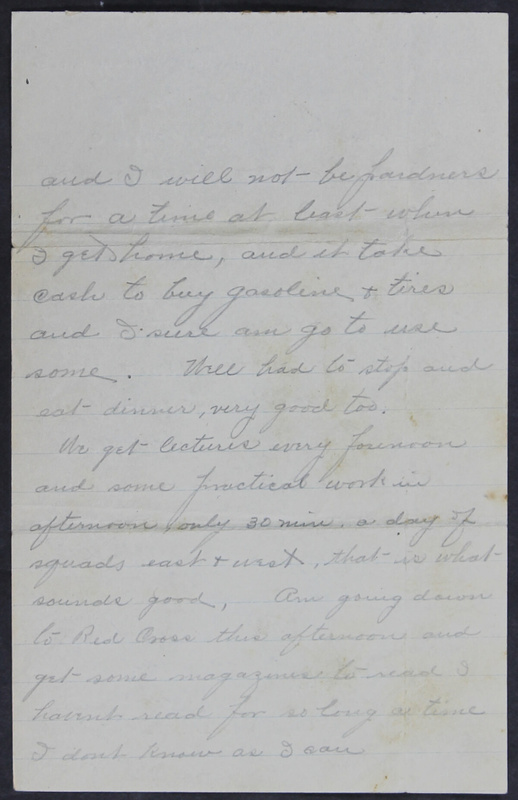 and I will not be pardners
for a time at least when
I get home, and it take
cash to buy gasoline & tires
and I sure am go to use
some. Well had to stop and
eat dinner, very good too.
We get lectures every forenoon
and some practical work in
afternoon, only 30 min. a day of
squads east & west, that is what
sounds good, Am going down
to Red Cross this afternoon and
get some magazines to read I
havent read for so long a time
I dont know as I can